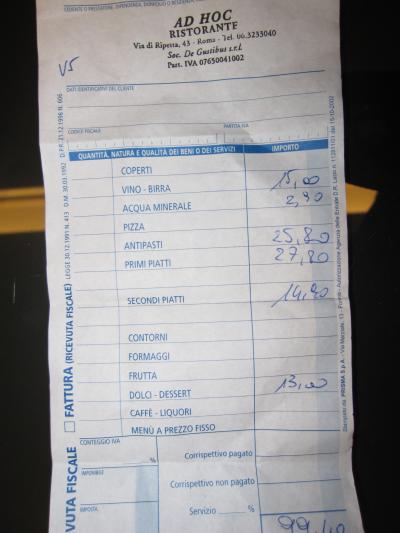 AD HOC
RISTORANTE
Via di Ripetta, 43 - Roma - Tel. 06.3233040
Soc. De Gustibus s.r.l.
Part. IVA 07650041002
V5
DATI IDENTIFICATIVI DEL CLIENTE
CODICE FISCALE PARTITA IVA
QUANTITÀ, NATURA E QUALITÀ DEI BENI O DEI SERVIZI IMPORTO
COPERTI
VINO - BIRRA 15,00
ACQUA MINERALE 2,90
PIZZA
ANTIPASTI 25,80
PRIMI PIATTI 27,80
SECONDI PIATTI
CONTORNI
FORMAGGI
FRUTTA
DOLCI - DESSERT 13,00
CAFFÈ - LIQUORI
MENÙ A PREZZO FISSO
CONTEGGIO IVA
%
IMPONIBILE
IMPOSTA
Corrispettivo pagato
Corrispettivo non pagato
Servizio %
99,40
FATTURA (RICEVUTA FISCALE)
VUTA FISCALE
LEGGE 30.12.1991 N. 413 D.M. 30.03.1992 D.P.R. 21.12.1996 N. 696